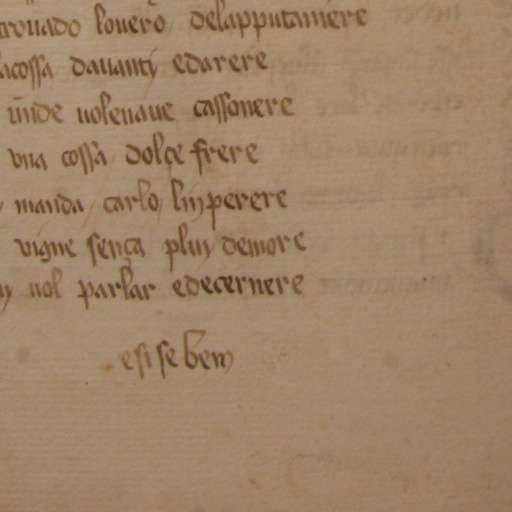 trovado lovero delapputaniere
acossa davantj edarere
unde volevave cassonere
una cossa dolçe frere
manda carlo linperere
vigne sença pluj demore
vol parlar edecernere
esisebem